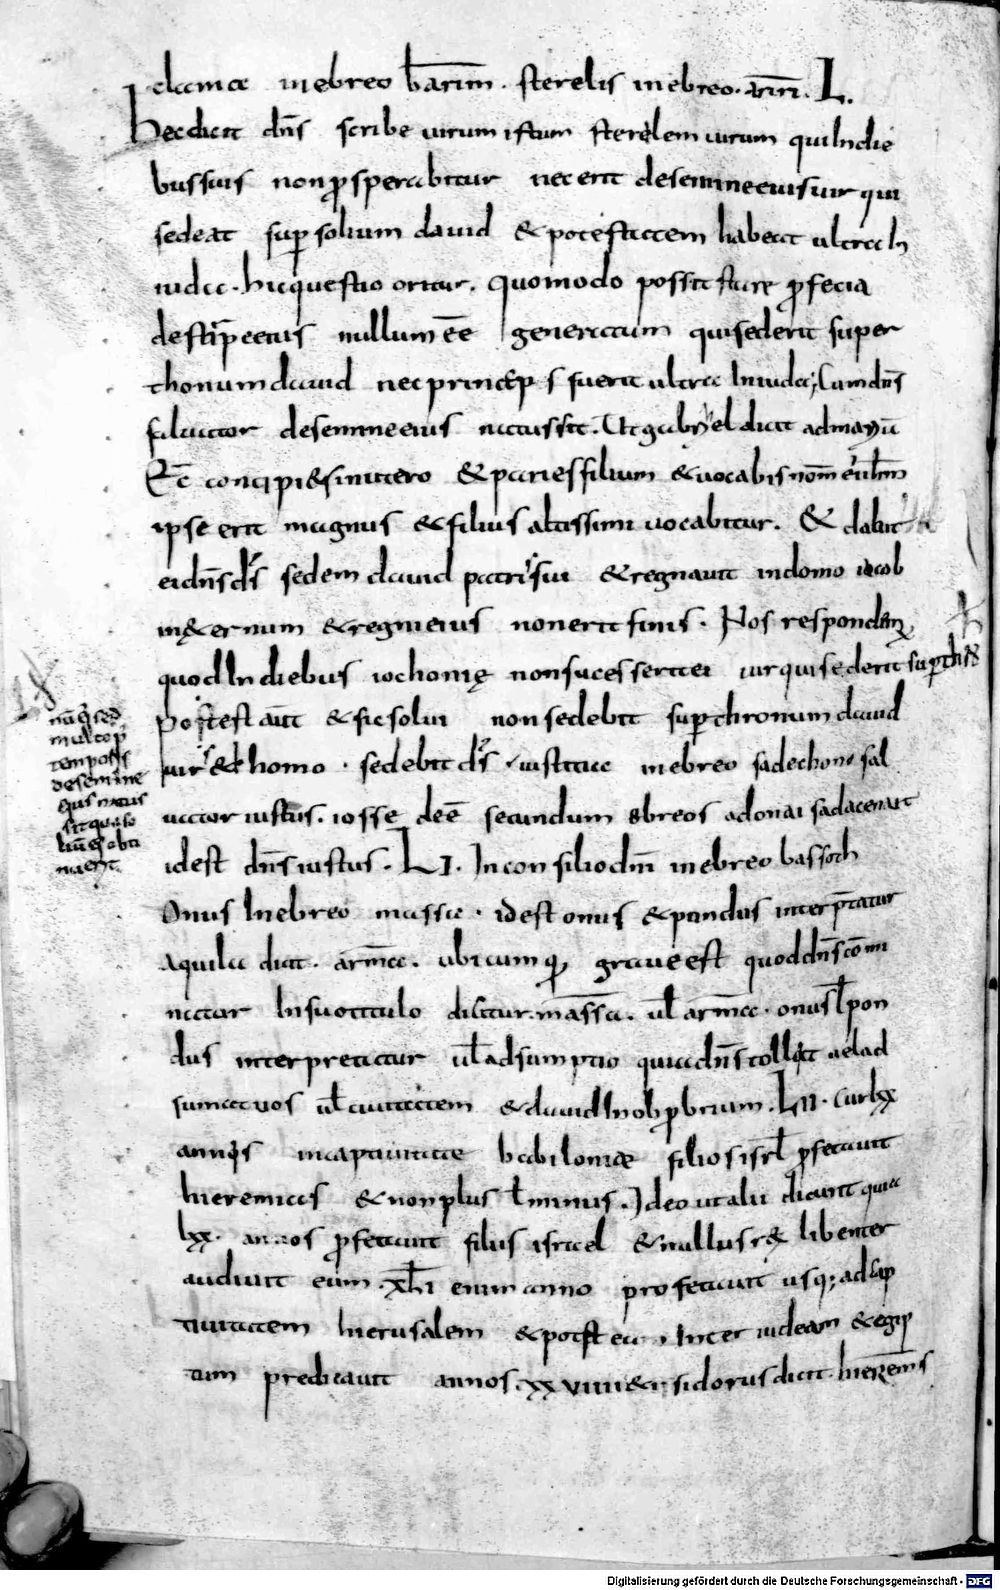 clamæ in ebreo barim. sterelis in ebreo. ariri. L.
Hec dicit dn̄s scribe uirum istum sterelem uirum qui In die
bus suis non ꝓsperabitur nec erit de semine eius uir qui
sedeat suꝑ solium dauid & potestatem habeat ultra In
iuda. hic questio oritur. quomodo possit stare ꝓfecia
de stirpe eius nullum ēē generatum qui sederit super
thonum dauid nec princeps fuerit ultra In iuda; Cum dn̄s
saluator de semine eius natus sit. Ut gabriel dicit ad mariā
Ecc̄ concipi&s in utero & paries filium & uocabis nom̄ ei
ipse erit magnus & filius altissimi uocabitur. & dabit
ei dn̄s d̄s sedem dauid patris sui & regnauit in domo iacob
in &ernum & regni eius non erit finis. Nos respondem
quod In diebus iochonię non successerit ei uir qui sederit suꝑ
post est aūt & sic solui non sedebit suꝑ thronum dauid
uir & homo. sedebit d̄s iustitiae in ebreo sadechone sal
uator iustus. iosse de ē secundum ebreos adonai sadacenait
id est dn̄s iustus. LI. In consilio dn̄i in ebreo bassoth
Onus In ebreo massa. id est onus & pondus interp̄tatur
Aquila dicit. arma. ubicumq; graue est quod dn̄s com̄i
natur In suo titulo dicitur massa. ul̄ arma. onus ł pon
dus interpretatur ul̄ adsumptio quia dn̄s tollat uel ad
sumat uos ul̄ ciuitatem & dauid In obꝓbrium. LII. Cur lxx
annis in captiuitate babiloniæ filios isrl̄ ꝓfetauit
hieremias & non plus ł minus. Ideo ut alii dicunt quia
lxx. annos ꝓfetauit filiis israel & nullus rex libenter
audiuit eum. xlī enim anno profetauit usq; ad cap
tiuitatem hierusalem & post ea Inter iudeam & egip
tum predicauit annos. xxviiii & isidorus dicit. hierem̄s
nū q̄ sed
multo p̄
temporis
de semine
eius natus
sit qui so
liū ei obti
nuerit.
Digitalisierung gefördert durch die Deutsche Forschungsgemeinschaft - DFG